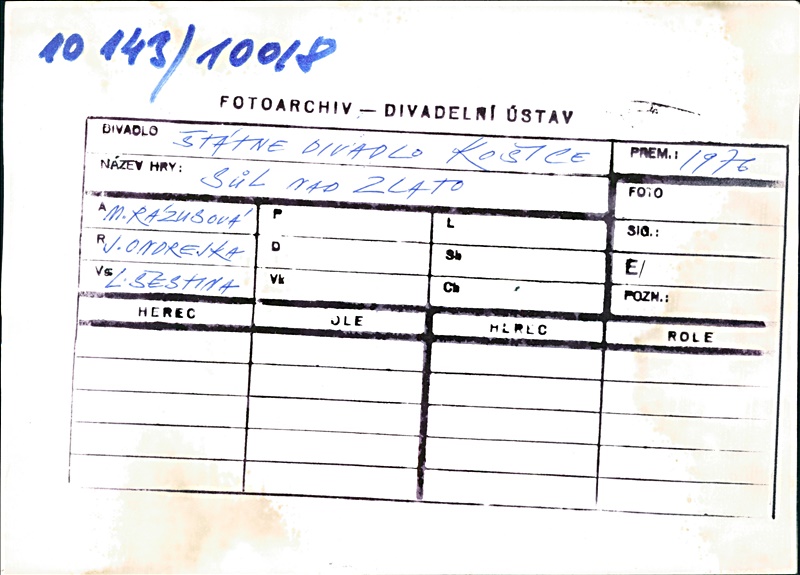 10 143/10018
FOTOARCHIV — DIVADELNÍ ÚSTAV
DIVADLO ŠTÁTNE DIVADLO KOŠICE PREM.: 1976
NÁZEV HRY: SŮL NAD ZLATO
FOTO
A M. RÁZUSOVÁ P L
SIG.:
R J. ONDREJKA D Sb
E/
Vs L. ŠESTINA Vk Ch
POZN.:
HEREC OLE HEREC ROLE